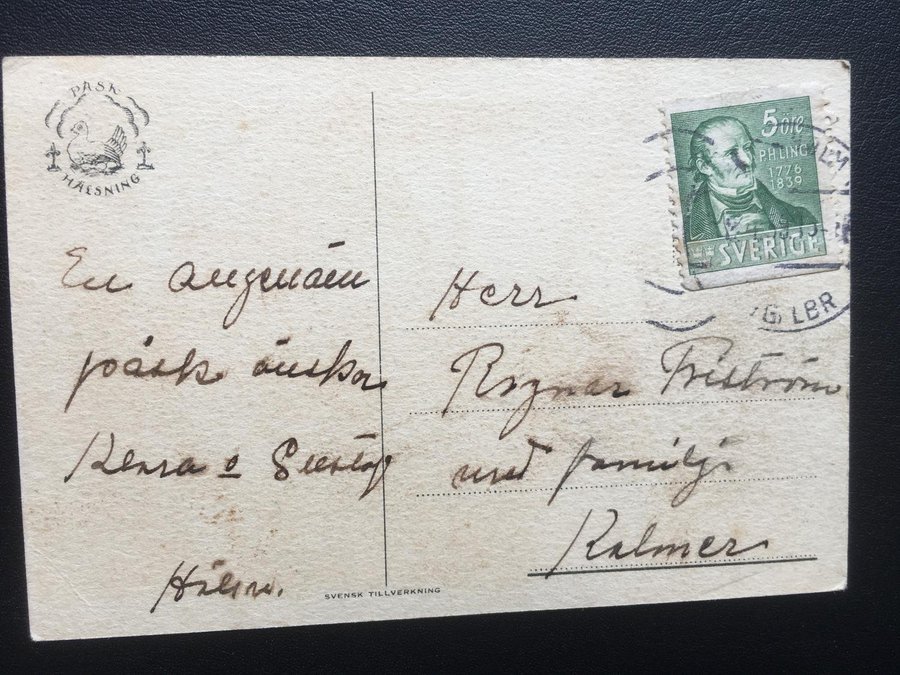 PÅSK
HÄLSNING
En angenäm
påsk önskar
o Gustaf
Hälsn.
SVENSK TILLVERKNING
5 öre
PH LING
1776
1839
SVERIGE
LBR
Herr
Ragnar Friström
med familj
Kalmar